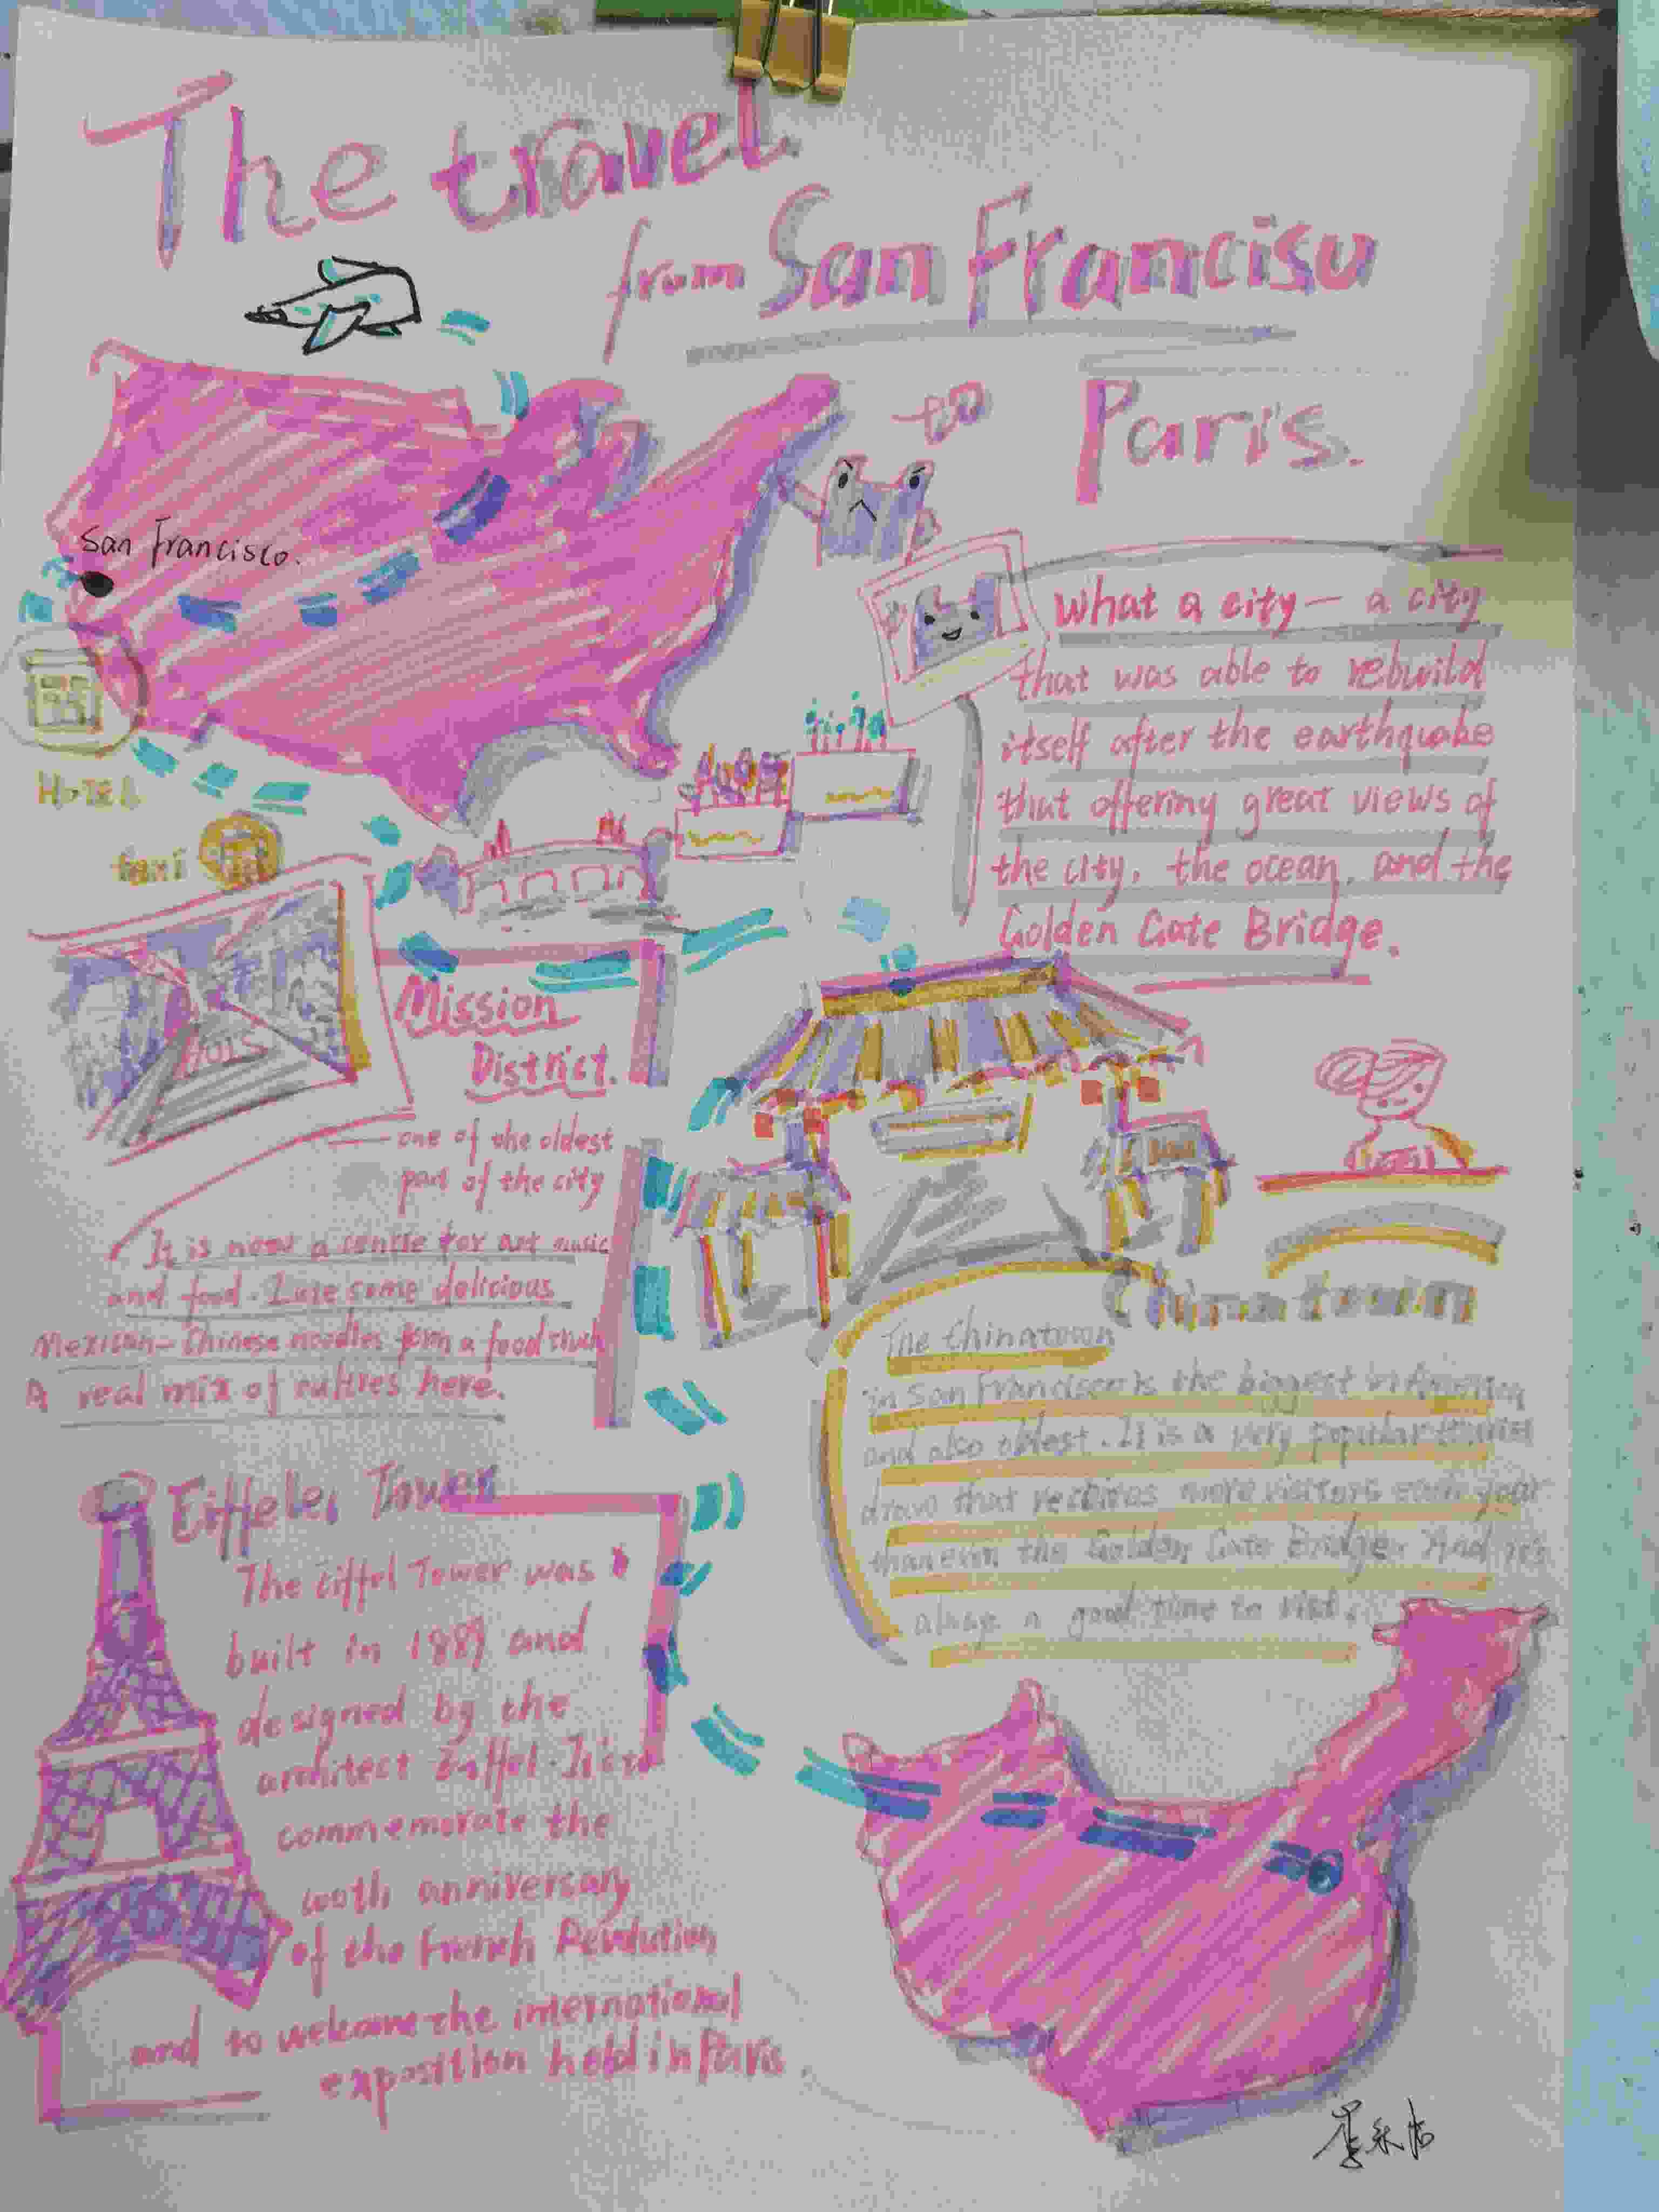 The travel
from San Francisu
to Paris.
San Francisco.
HOTEL
taxi
What a city — a city
that was able to rebuild
itself after the earthquake
that offering great views of
the city, the ocean, and the
Golden Gate Bridge.
Mission
District.
one of the oldest
part of the city
It is now a centre for art music
and food. some delicious
Mexican-Chinese noodles form a food truck
A real mix of cultres here.
Chinatown
The Chinatown
in San Francisco is the biggest in America
and also oldest. It is a very popular tourist
draw that receives more visitors each year
than even the Golden Gate Bridge. And it's
alway a good time to visit.
Eiffele Tower
The Eiffel Tower was
built in 1889 and
designed by the
architect Eiffel. It's to
commemorate the
100th anniversary
of the French Revolution
and to welcome the international
exposition held in Paris.